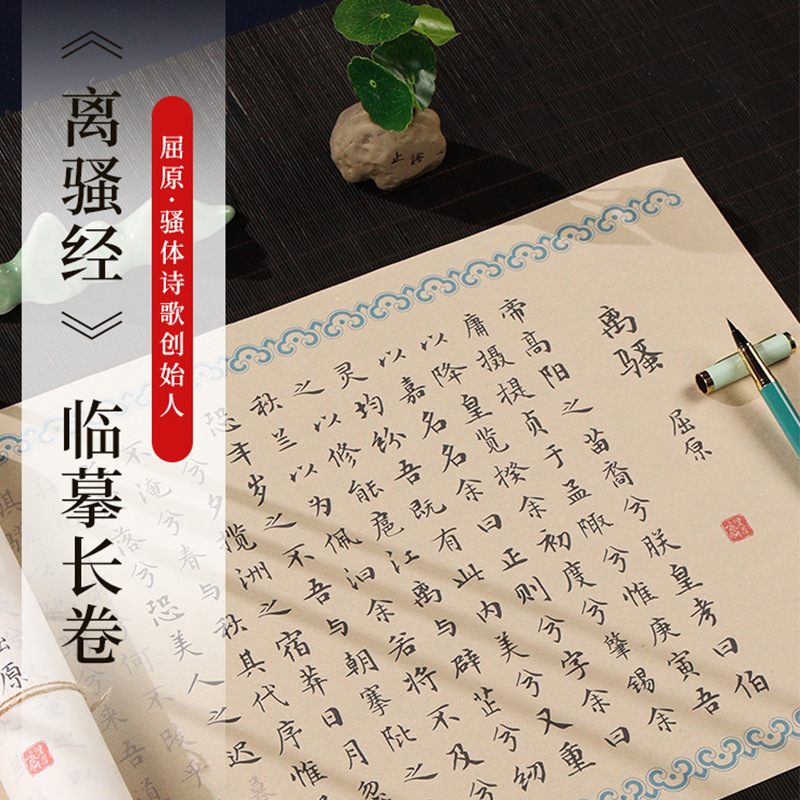 《离骚经》临摹长卷
屈原·骚体诗歌创始人
止语
离骚
屈原
帝高阳之苗裔兮朕皇考曰伯
庸摄提贞于孟陬兮惟庚寅吾
以降皇览揆余初度兮肇锡余
以嘉名名余曰正则兮字余曰
灵均纷吾既有此内美兮又重
之以修能扈江离与辟芷兮纫
秋兰以为佩汩余若将不及兮
恐年岁之不吾与朝搴阰之
兮夕揽洲之宿莽日月忽
不淹兮春与秋其代序惟
落兮恐美人之迟暮
何不改乎
来吾道
屈原